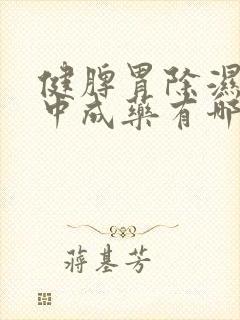 健脾胃除濕
中成藥有哪
蔣基芳